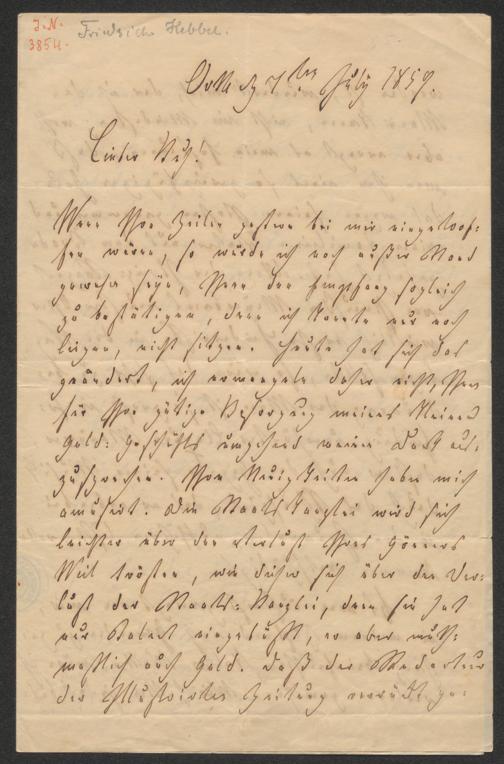 J.N.
3854.
Friedrich Hebbel.
Orth d. 7ten July 1857.
Lieber Kuh!
Wenn Ihre Zeilen gestern bei mir eingelau-
fen wären, so würde ich noch außer Stand
gewesen seyn, Ihnen den Empfang sogleich
zu bestätigen, denn ich konnte nur noch
liegen, nicht sitzen. Heute hat sich das
geändert, ich ermangele daher nicht, Ihnen
für Ihre gütige Besorgung meines kleinen
Geld-Geschäfts umgehend meinen Dank aus-
zusprechen. Ihre Neuigkeiten haben mich
amüsirt. Die Staatskanzlei wird sich
leichter über den Verlust Ihres
Weil trösten, wie dieser sich über den Ver-
lust der Staats-Kanzlei, denn sie hat
nur eingebüßt, er aber muth-
maßlich auch Geld. Daß der Redacteur
der Illustrirten Zeitung verrückt ge-